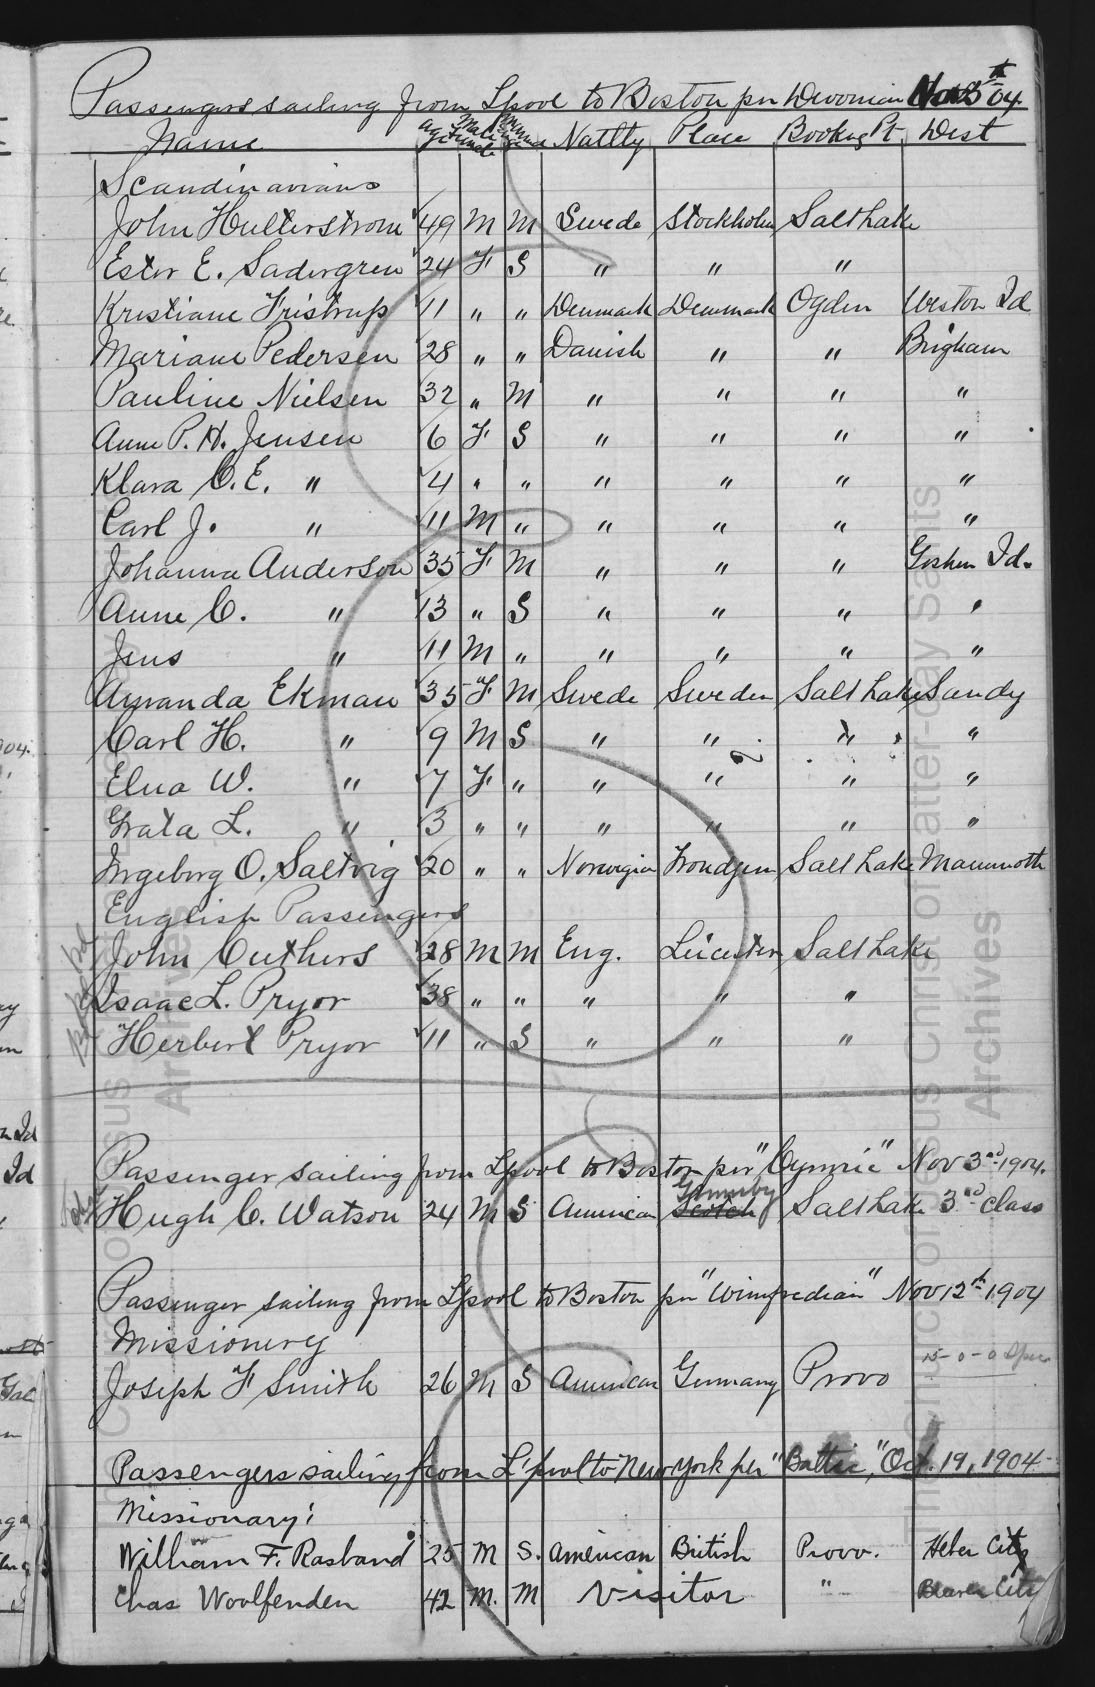 Passengers sailing from Lpool to Boston per Devonian Nov 5th 04.
Name age Male Female Natlty Place Bookng Pt. Dest
Scandinavians
John Hulterstrom 49 M M Swede Stockholm Salt Lake
Ester E. Sadergren 24 F S " " "
Kristiane Fristrup 11 " " Denmark Denmark Ogden Weston Id
Mariane Pedersen 28 " " Danish " " Brigham
Pauline Nielsen 32 " M " " " "
Anne P. H. Jensen 6 F S " " " "
Klara C. E. " 4 " " " " " "
Carl J. " 11 M " " " " "
Johanna Anderson 35 F M " " " Goshen Id.
Anne C. " 13 " S " " " "
Jens " 11 M " " " " "
Amanda Ekman 35 F M Swede Sweden Salt Lake Sandy
Carl H. " 9 M S " " " "
Elna W. " 7 F " " " " "
Grata L. " 3 " " " " " "
Ingeborg O. Saltvig 20 " " Norwegian Trondjem Salt Lake Mammoth
English Passengers
John Cuthers 28 M M Eng. Leicester Salt Lake
Isaac L. Pryor 38 " " " " "
Herbert Pryor 11 " S " " "
Passenger sailing from Lpool to Boston per "Cymric" Nov 3rd 1904.
Grimsby
Hugh C. Watson 24 M S American Scotch Salt Lake 3rd class
Passenger sailing from Lpool to Boston per "Winifredian" Nov 12th 1904
Missionery
15-0-0
Joseph F Smith 26 M S American Germany Provo
Passengers sailing from L'pool to New York per "Baltic," Oct. 19, 1904
Missionary:
William F. Rasband 25 M S. American British Provo. Heber City
Chas Woolfenden 42 M. M Visitor " Beaver City
The Church of Jesus Christ of Latter-day Saints
Archives
The Church of Jesus Christ of Latter-day Saints
Archives